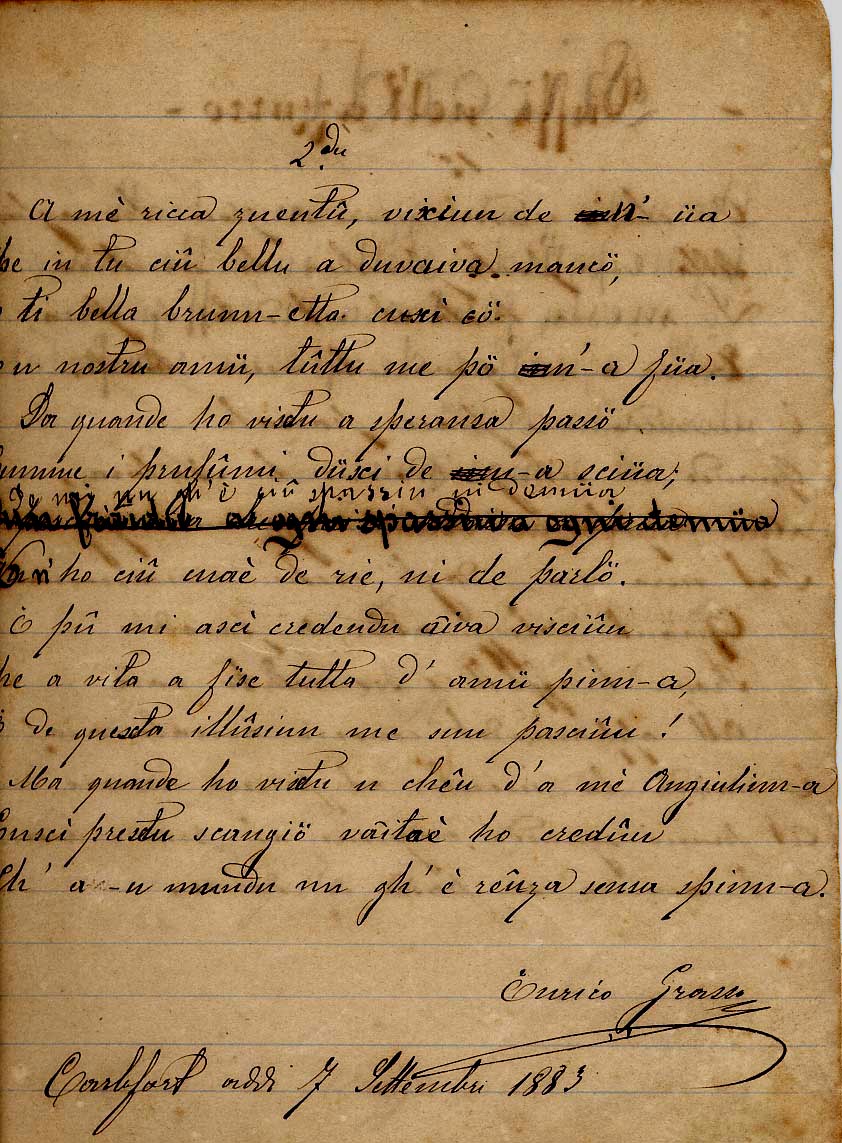 2.du
A mè ricca zuentû, vixiun de n'- üa
he in tu ciû bellu a duvaiva mancö,
ti bella brunn-etta cuxì cö.
u nostru amü, tûttu me pö n'-a füa.
Da quande ho vistu a speransa passö
umme i prufûmi düsci de n-a sciüa;
mi nu gh'è ciû spassziu ni demüa
n'ho ciû cuaè de rie, ni de parlö.
E pû mi ascì credendu aîva visciûu
he a vita a füse tutta d' amü pinn-a,
de questa illûsiun me sun pasciûu !
Ma quande ho vistu u chêu d'a mè Angiulinn-a
uscì prestu scangiö vaîtaè ho credûu
Gh' a-u mundu nu gh' è rêuza sensa spinn-a.
Enrico Grasso
Carlofort addi 7 Settembri 1883